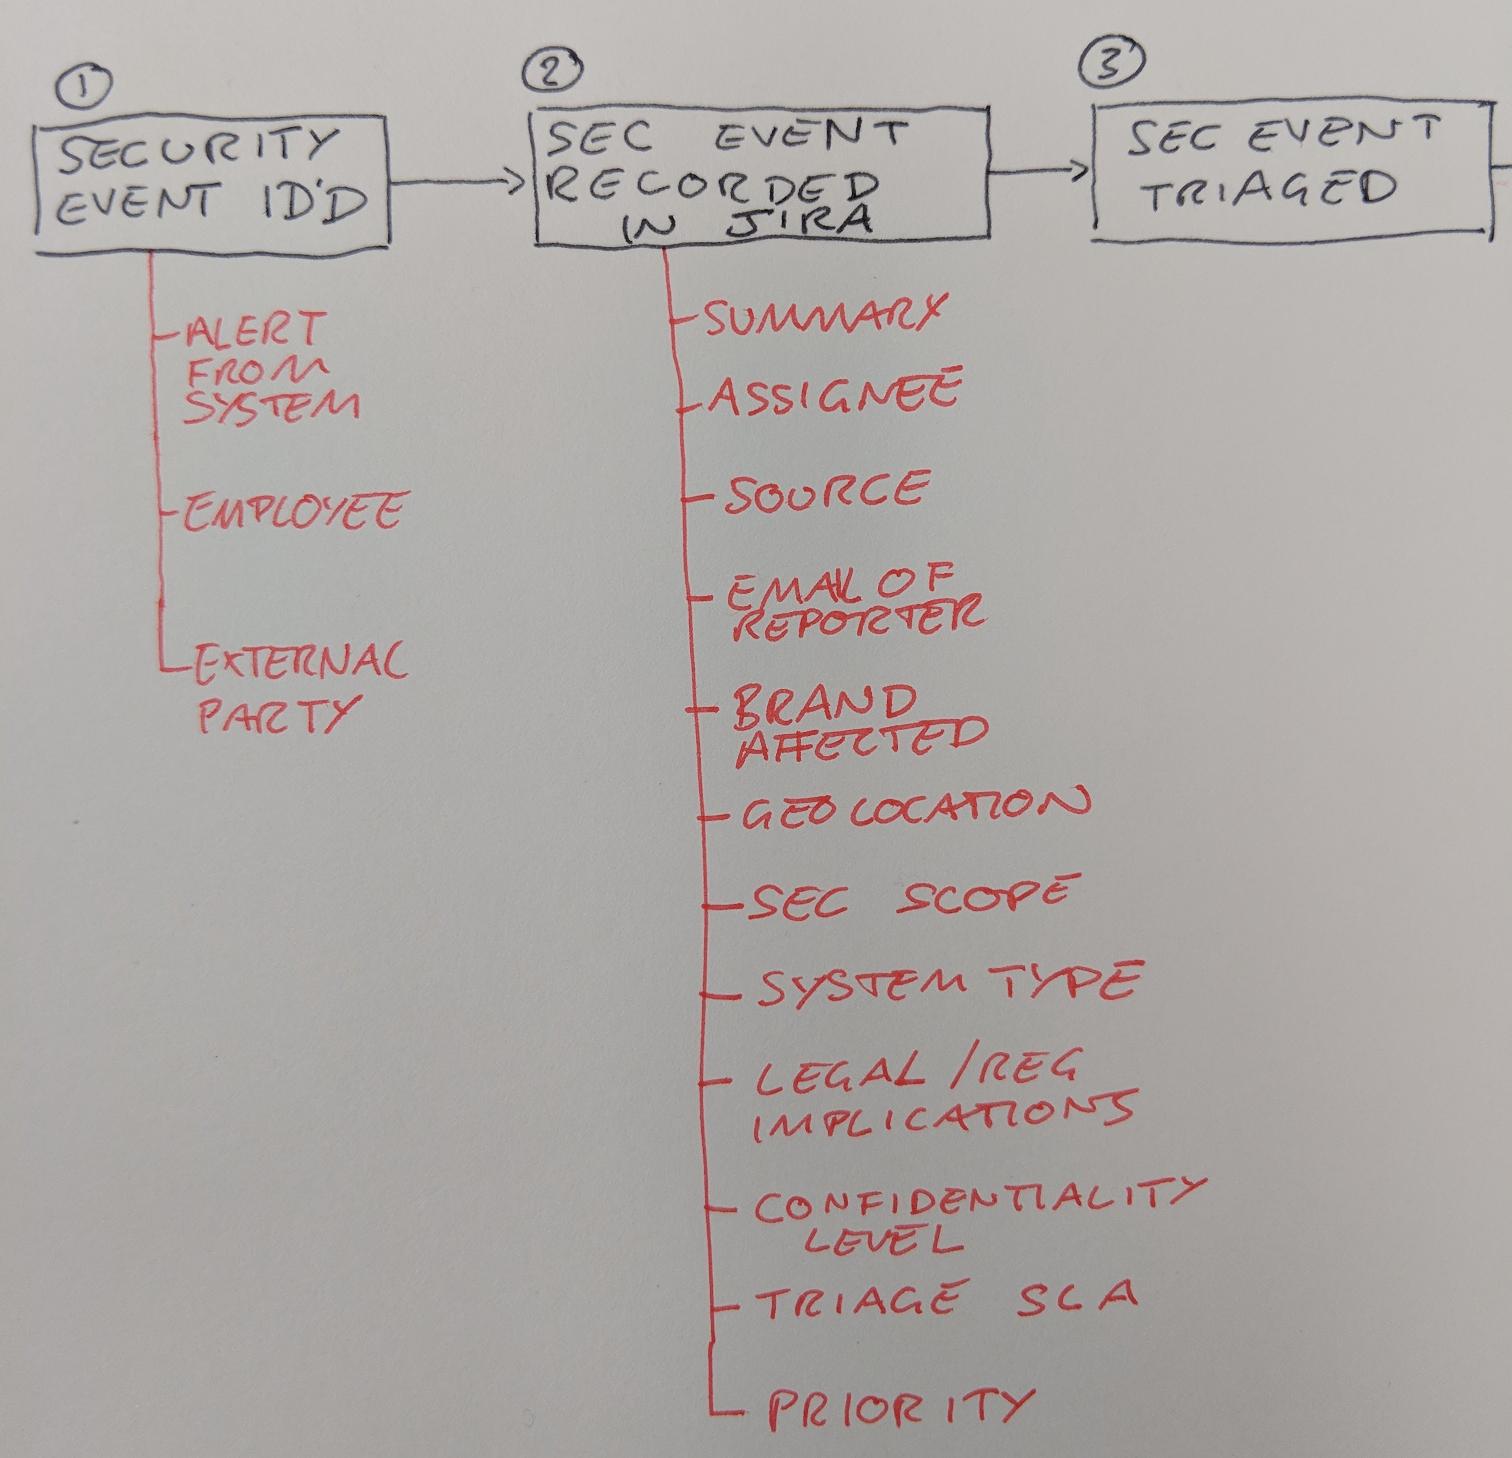 1
SECURITY
EVENT ID'D
ALERT
FROM
SYSTEM
EMPLOYEE
EXTERNAL
PARTY
2
SEC EVENT
RECORDED
IN JIRA
SUMMARY
ASSIGNEE
SOURCE
EMAIL OF
REPORTER
BRAND
AFFECTED
GEO LOCATION
SEC SCOPE
SYSTEM TYPE
LEGAL/REG
IMPLICATIONS
CONFIDENTIALITY
LEVEL
TRIAGE SLA
PRIORITY
3
SEC EVENT
TRIAGED